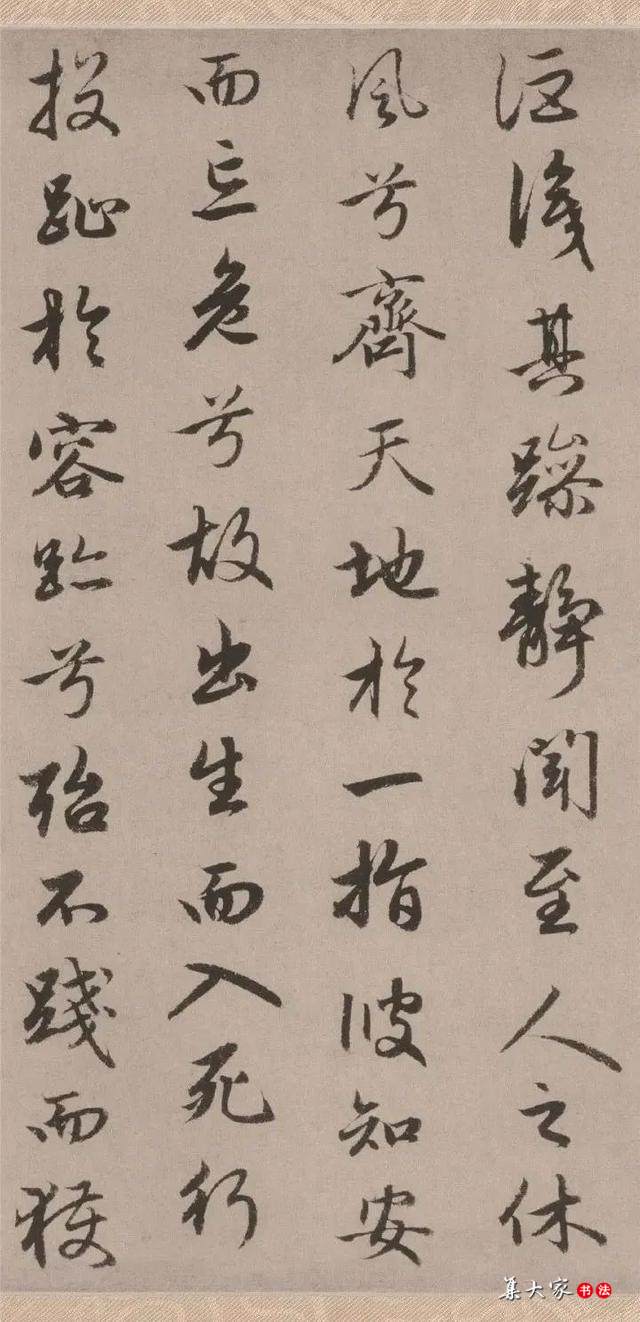 詎識其躁靜聞至人之休
風兮齊天地於一指彼知安
而忘危兮故出生而入死行
投趾於容跡兮殆不踐而獲
集大家书法